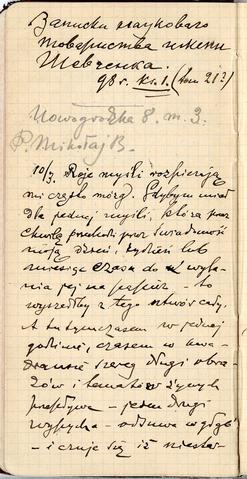 Записки наукового
товариства имени
Шевченка.
98 г. Кн. 1. (том 21?)
Nowogrodzka 8. m. 3.
P. Mikołaj B.
10/I. Roje myśli rozpierają
mi często mózg. Gdybym miał
dla jednej myśli, która przez
chwilę przechodzi przez świadomość
moją dzień, tydzień lub
miesiąc czasu do wyla-
nia jej na papier - to
wyszedłby z tego utwór cały.
A tu tymczasem w jednej
godzinie, czasem w kwa-
dransie szereg długi obra-
zów i tematów żywych
przepływa - jeden drugi
wypycha - odsuwa w głąb
- i czuję się iż niestar-